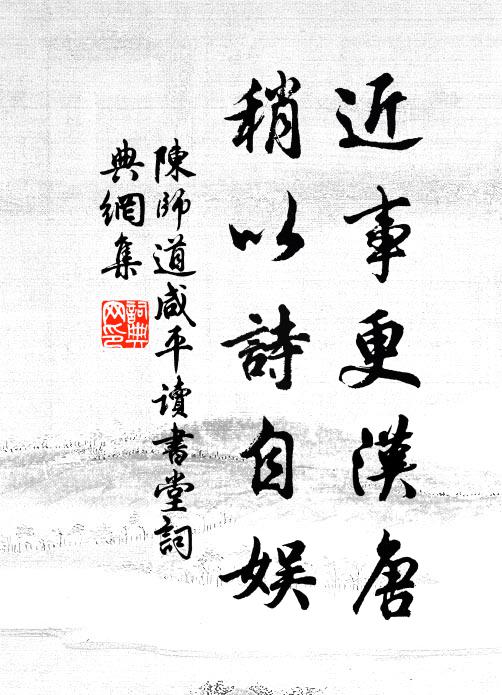 近事更漢唐
稍以詩自娛
陳師道咸平讀書堂詞
典網集
詞典網印